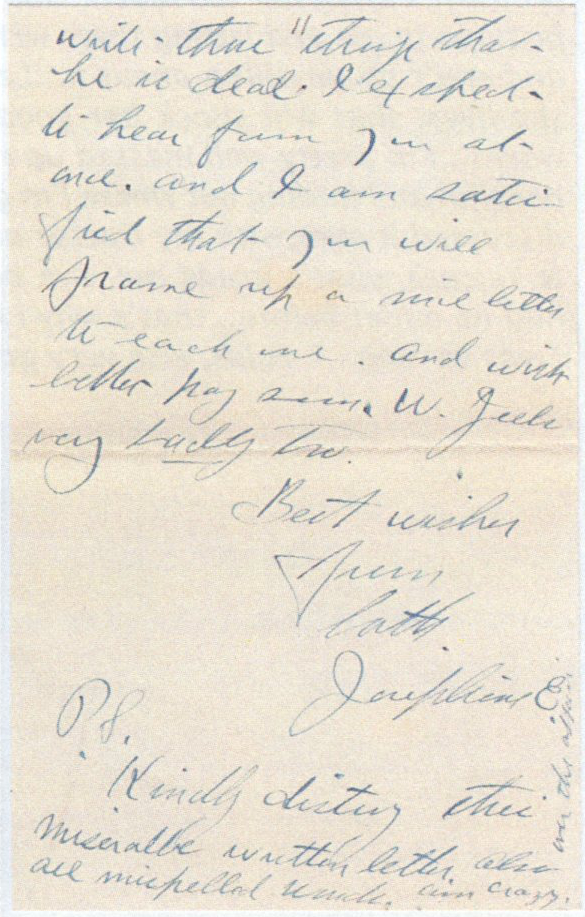 write those "things that
he is dead. I expect
to hear from you at
once. and I am satis
fied that you will
frame up a nice letter
to each one. and with
better pay soon. W. feels
very badly too.
Best wishes
from
both.
Josephine E.
P.S.
Kindly distroy this
miseralbe written letter. also
all mispelled words. am crazy.
over this